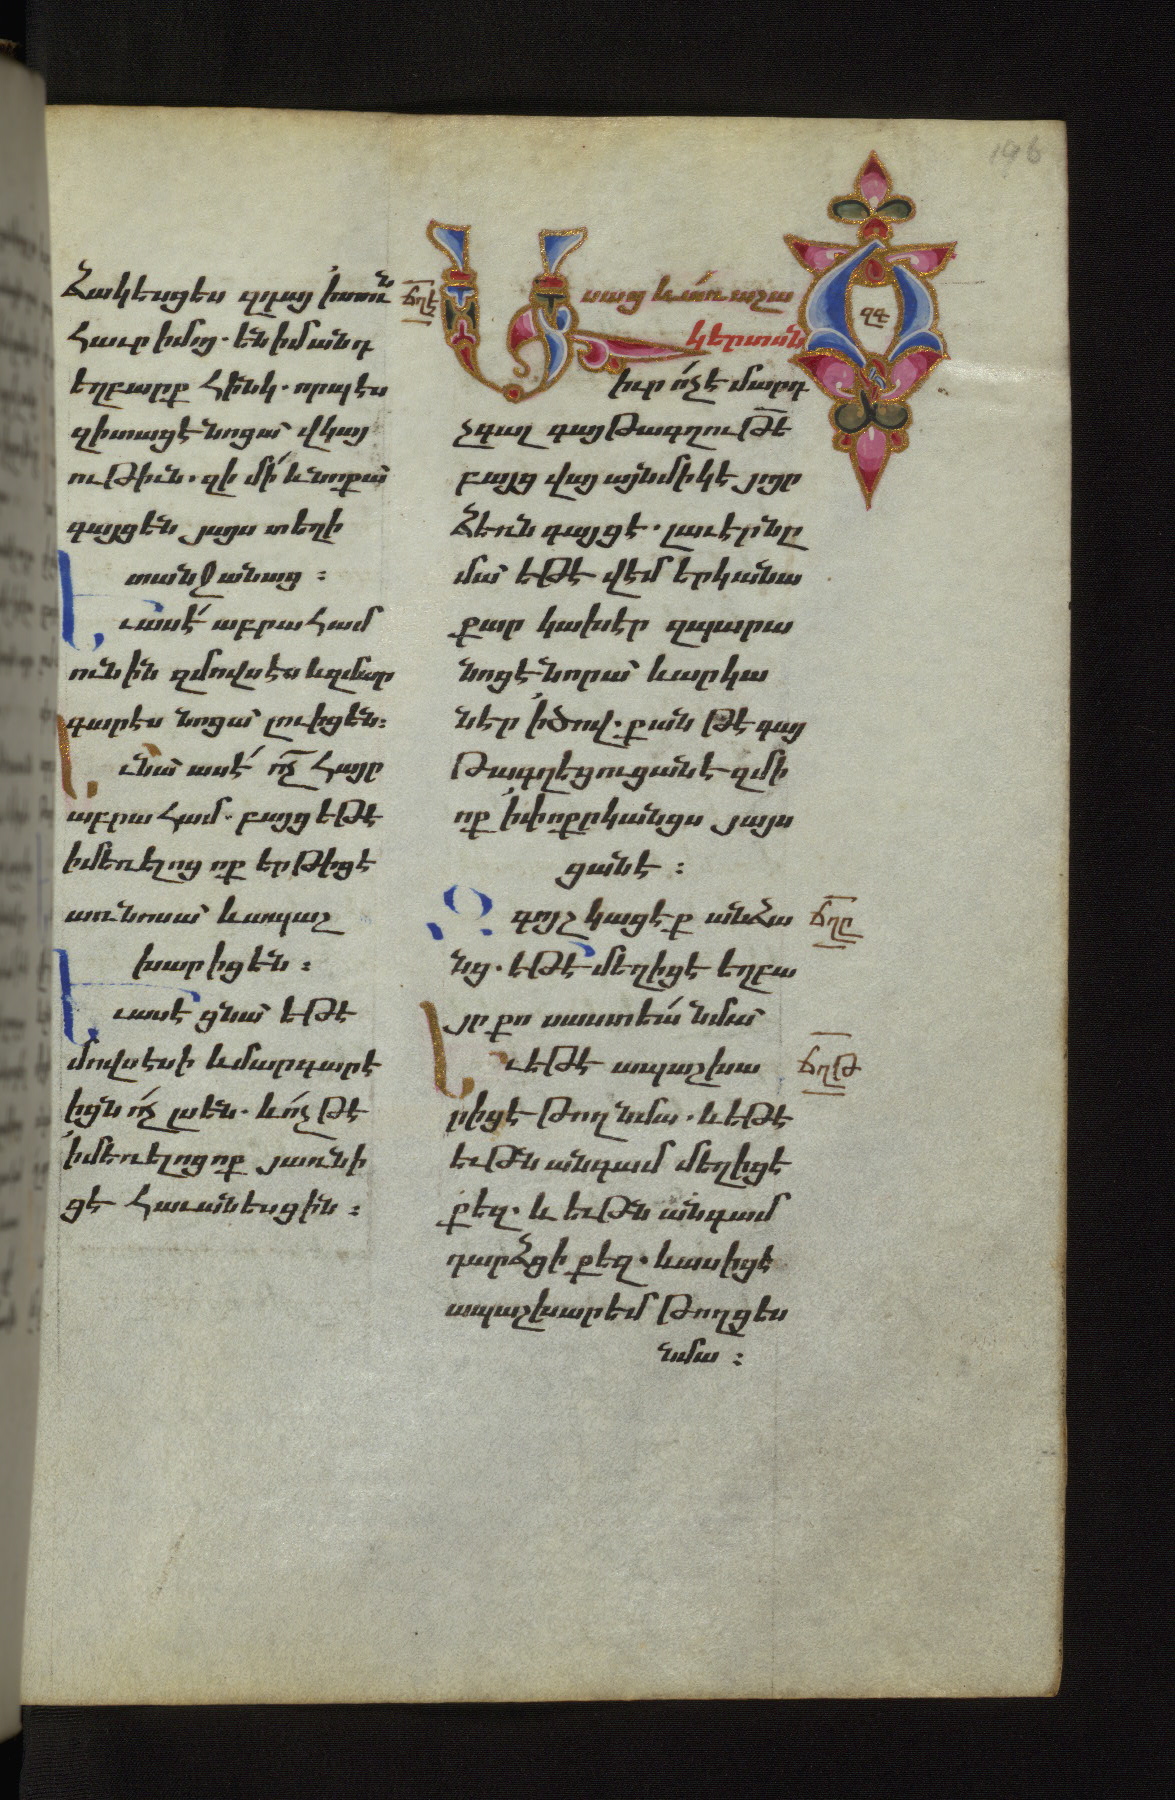 196
ձակեսցես զդայ ի տուն
հաւր իմոյ. են իմ անդ
եղբարք հինգ. որպէս
զի տացէ նոցա վկայ
ութիւն. զի մի և նոքա
գայցեն յայս տեղի
տանջանաց :
Եւ ասէ աբրահամ
ունին զմովսէս և զմար
գարէս նոցա լուիցեն :
Եւ նա ասէ ոչ հայր
աբրահամ. բայց եթէ
ի մեռելոց ոք երթիցէ
առ նոսա և ապաշ
խարիցեն :
Եւ ասէ ցնա եթէ
մովսէսի և մարգարէ
իցն ոչ լսեն. և ոչ թէ
ի մեռելոց ոք յառնի
ցէ հաւանեսցին :
ՃՂԷ
Ասաց և առ աշա
կերտսն
իւր ոչ է մարթ
չգալ գայթագղութե
բայց վայ այնմիկ է յոյր
ձեռն գայցէ. լաւ էր նը
մա եթէ վէմ երկանա
քար կախէր զպարա
նոցէ նորա և արկա
նէր ի ծով. քան թէ գայ
թագղեցուցանէ զմի
ոք ի փոքրկանցս յայս
ցանէ :
ԶԳ
Զգոյշ կացէք անձա
նց. եթէ մեղիցէ եղբա
յր քո սաստեա նմա
Եւ եթէ ապաշխա
րիցէ թող նմա. և եթէ
եւթն անգամ մեղիցէ
քեզ. և եւթն անգամ
դարձցի քեզ. և ասիցէ
ապաշխարեմ թողցես
նմա :
ՃՂԸ
ՃՂԹ